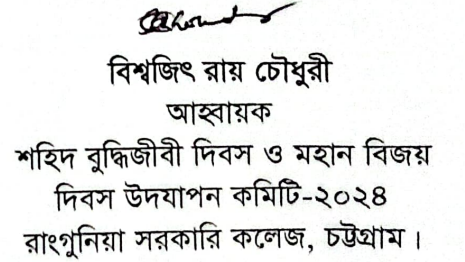 বিশ্বজিৎ রায় চৌধুরী
আহ্বায়ক
শহিদ বুদ্ধিজীবী দিবস ও মহান বিজয়
দিবস উদযাপন কমিটি-২০২৪
রাংগুনিয়া সরকারি কলেজ, চট্টগ্রাম।